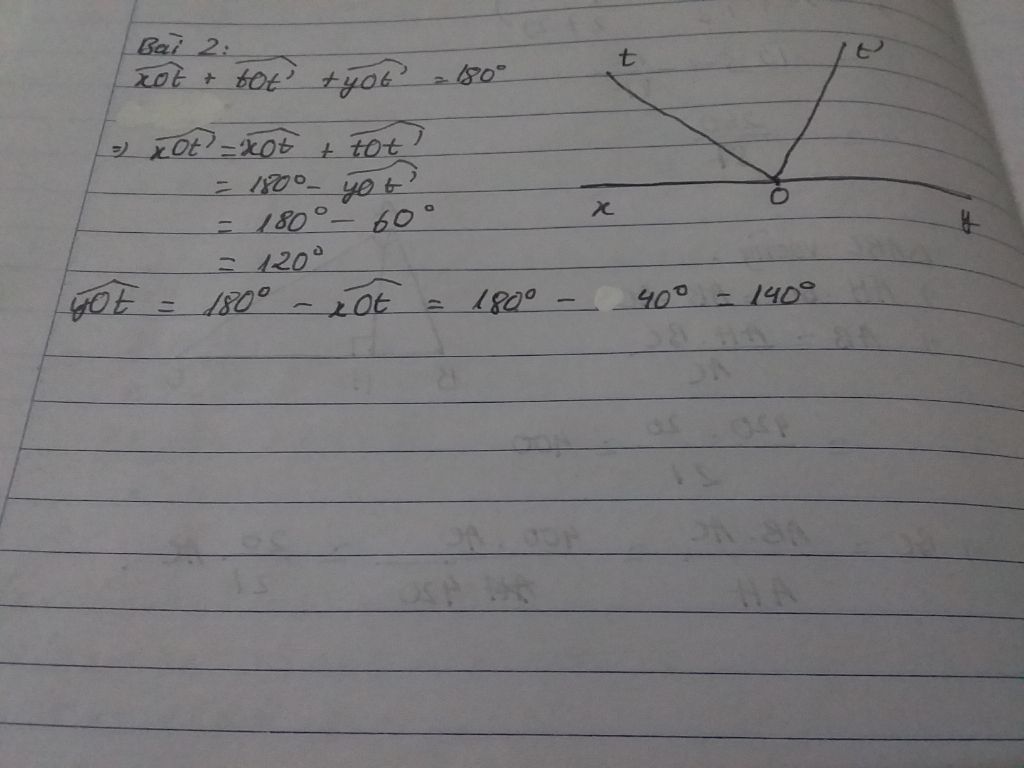 Bài 2:
xOt + tOt' + yOt' = 180°
=> xOt' = xOt + tOt'
= 180° - yOt'
= 180° - 60°
= 120°
yOt = 180° - xOt = 180° - 40° = 140°
t
t'
x
O
y